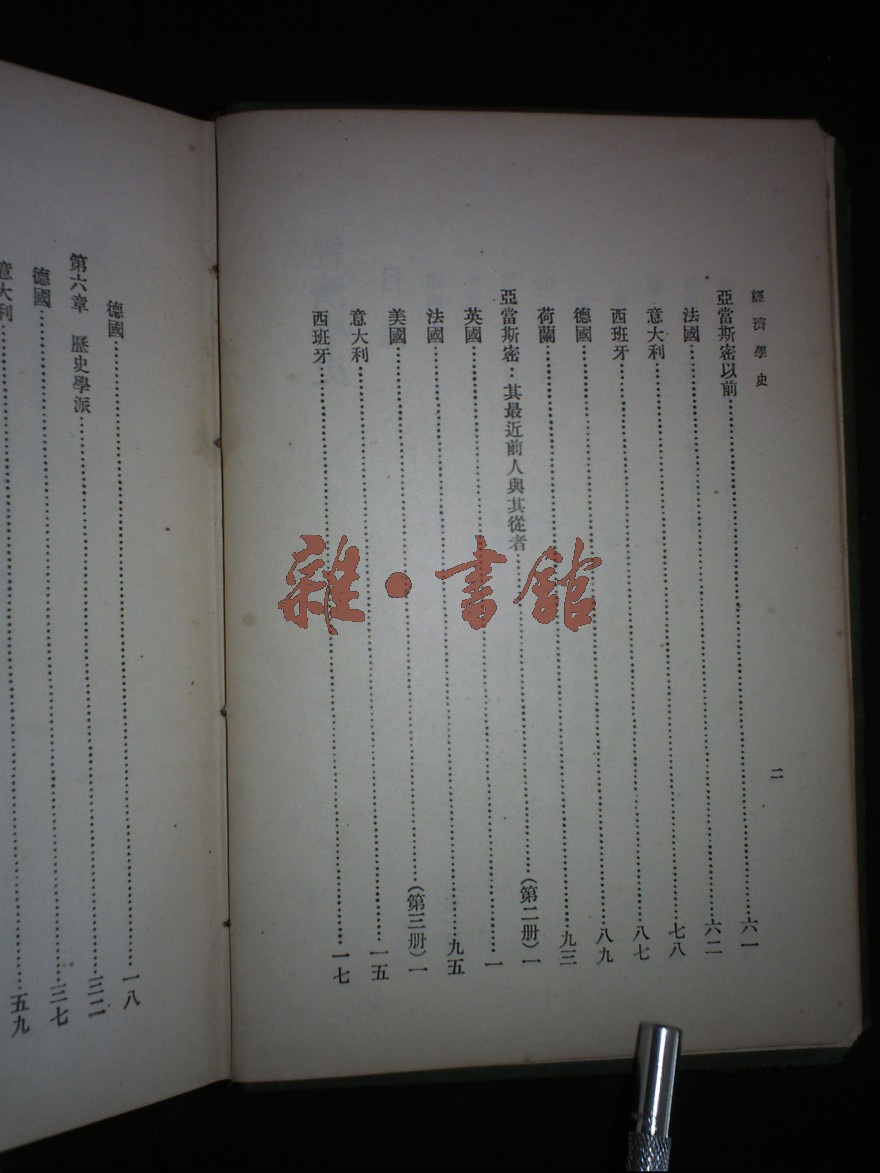 經濟學史
二
亞當斯密以前……六一
法國……六二
意大利……七八
西班牙……八七
德國……八九
荷蘭……九三
亞當斯密：其最近前人與其從者……(第二册)一
英國……一
法國……九五
美國……(第三册)一
意大利……一五
西班牙……一七
德國……一八
第六章 歷史學派……三二
德國……三七
意大利……五九
雜·書館